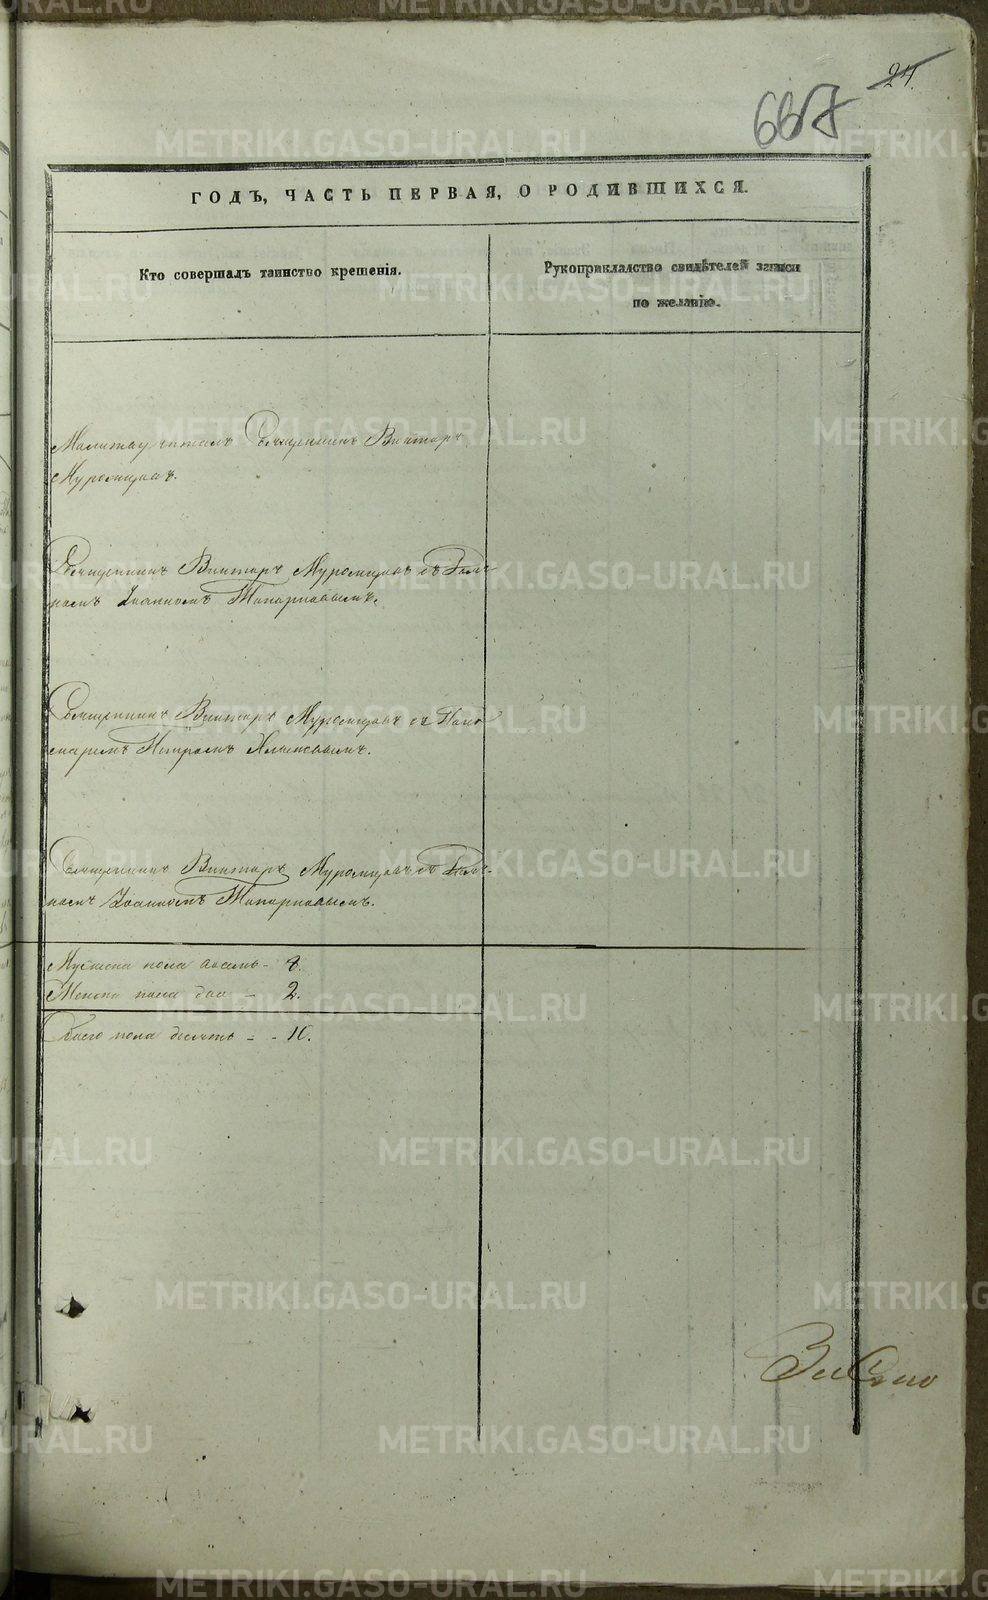 24.
667
ГОДЪ, ЧАСТЬ ПЕРВАЯ, О РОДИВШИХСЯ.
Кто совершалъ таинство крещенія.
Рукоприкладство свидѣтелей записи
по желанію.
Молитву читалъ Священникъ Викторъ
Муромцовъ.
Священникъ Викторъ Муромцовъ съ
Іоанномъ Топорковымъ.
Священникъ Викторъ Муромцовъ съ Поно
маремъ Петромъ
Священникъ Викторъ Муромцовъ съ
Іоанномъ Топорковымъ.
Мужеска пола восемь - 8.
Женска пола два - 2.
Обоего пола десять - - 10.
METRIKI.GASO-URAL.RU